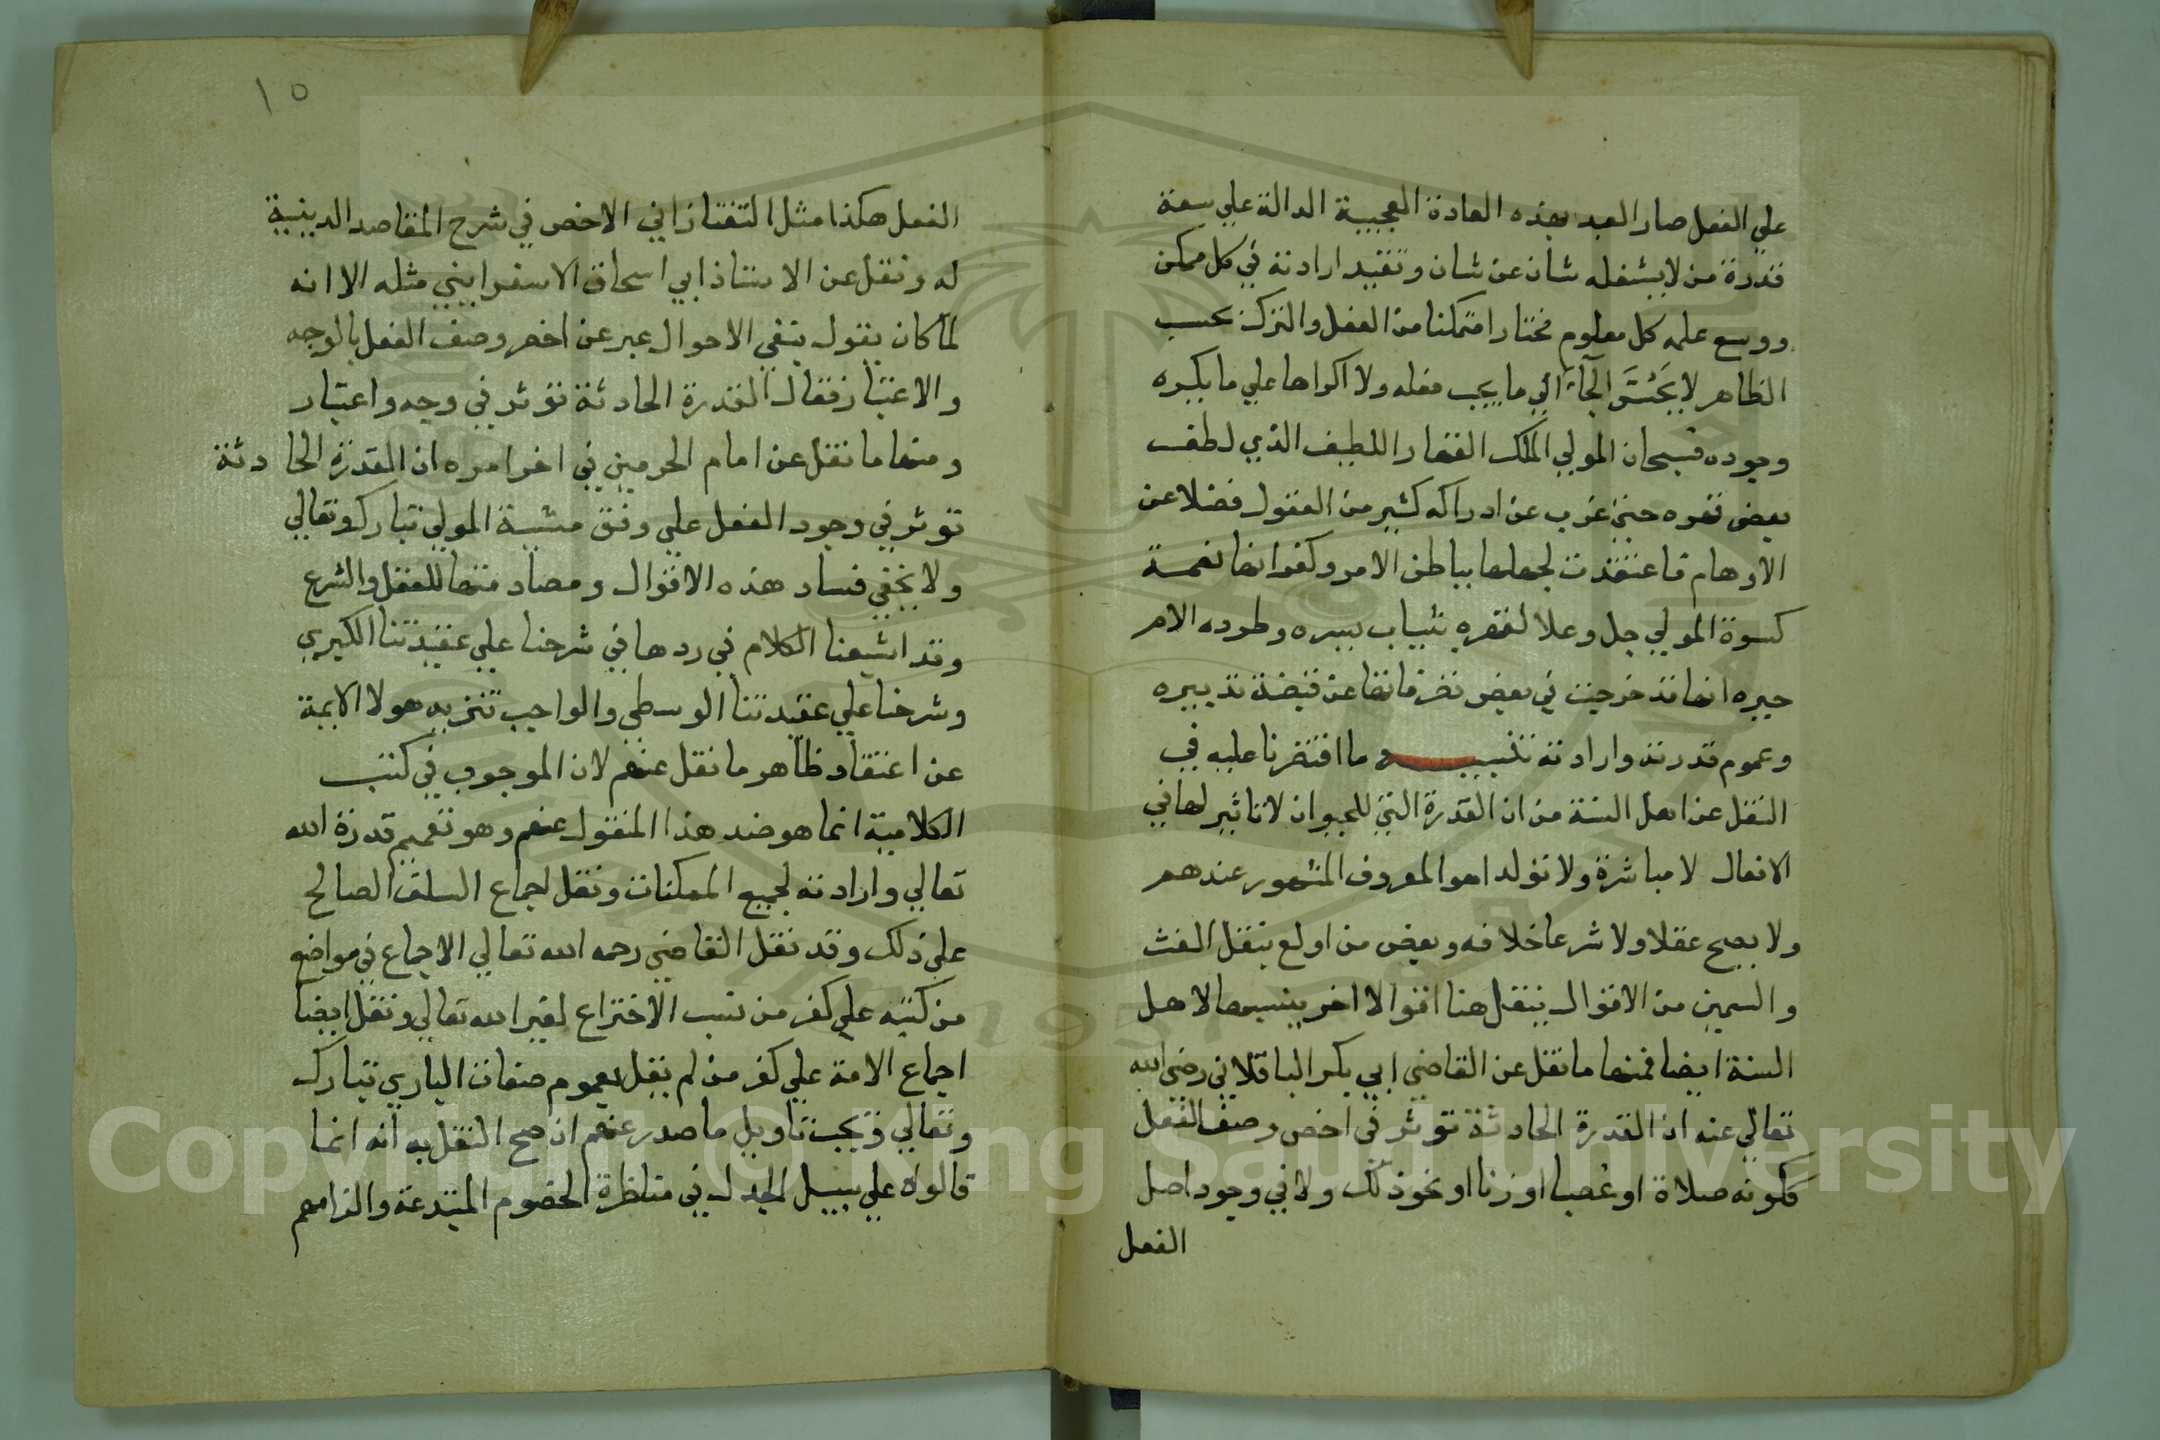 علي الفعل صار العبد بهذه العادة العجيبة الدالة علي سعة
قدرة من لا يشغله شان عن شان وتقيد ارادته في كل ممكن
ووسع علمه كل معلوم مختارا متمكنا من الفعل والترك بحسب
الظاهر لا يَحُسَّ الجآءً الي ما يحب فعله ولا اكراها علي ما يكره
وجوده فسبحان المولي الملك القهار اللطيف الذي لطف
بعض قهره حتي غرب عن ادراكه كثير من العقول فضلا عن
الاوهام فاعتقدت لجهلها بباطن الامر وكفرانها نعمة
كسوة المولي جل وعلا لقهره بثياب يسره وطرده الامر
جبره انها قد خرجت في بعض تصرفاتها عن قبضة تدبيره
وعموم قدرته وارادته تنبيــــه وما اقتصرنا عليه في
النقل عن اهل السنة من ان القدرة التي للحيوان لا تاثير لها في
الافعال لا مباشرة ولا تولدا هو المعروف المشهور عندهم
ولا يصح عقلا ولا شرعا خلافه وبعض من اولع بنقل الغث
والسمين من الاقوال ينقل هنا اقوالا اخر ينسبها لاهل
السنة ايضا فمنها ما نقل عن القاضي ابي بكر الباقلاني رضي الله
تعالي عنه ان القدرة الحادثة توثر في اخص وصف الفعل
ككونه صلاة او غصبا او زنا او نحو ذلك ولا في وجود اصل
الفعل
١٥
الفعل هكذا مثل التفتازاني الاخص في شرح المقاصد الدينية
له ونقل عن الاستاذ ابي اسحاق الاسفرايني مثله الا انه
لما كان يقول بنفي الاحوال عبر عن اخص وصف الفعل بالوجه
والاعتبار فقال القدرة الحادثة توثر في وجه واعتبار
ومنها ما نقل عن امام الحرمين في اخر امره ان القدرة الحادثة
توثر في وجود الفعل علي وفق مشية المولي تبارك وتعالي
ولا يخفي فساد هذه الاقوال ومضادمتها للعقل والشرع
وقد اشبعنا الكلام في ردها في شرحنا علي عقيدتنا الكبري
وشرحنا علي عقيدتنا الوسطي والواجب تنزيه هولا الايمة
عن اعتقاد ظاهر ما نقل عنهم لان الموجود في كتب
الكلامية انما هو ضد هذا المنقول عنهم وهو تعميم قدرة الله
تعالي وارادته لجميع الممكنات ونقل اجماع السلف الصالح
علي ذلك وقد نقل القاضي رحمه الله تعالي الاجماع في مواضع
من كتبه علي كفر من نسب الاختراع لغير الله تعالي ونقل ايضا
اجماع الامة علي كفر من لم يقل بعموم صفات الباري تبارك
وتعالي ويجب تاويل ما صدر عنهم ان صح النقل به انه انما
قالوه علي سبيل الجدل في مناظرة الخصوم المبتدعة والزامهم
Copyright © King Saud University